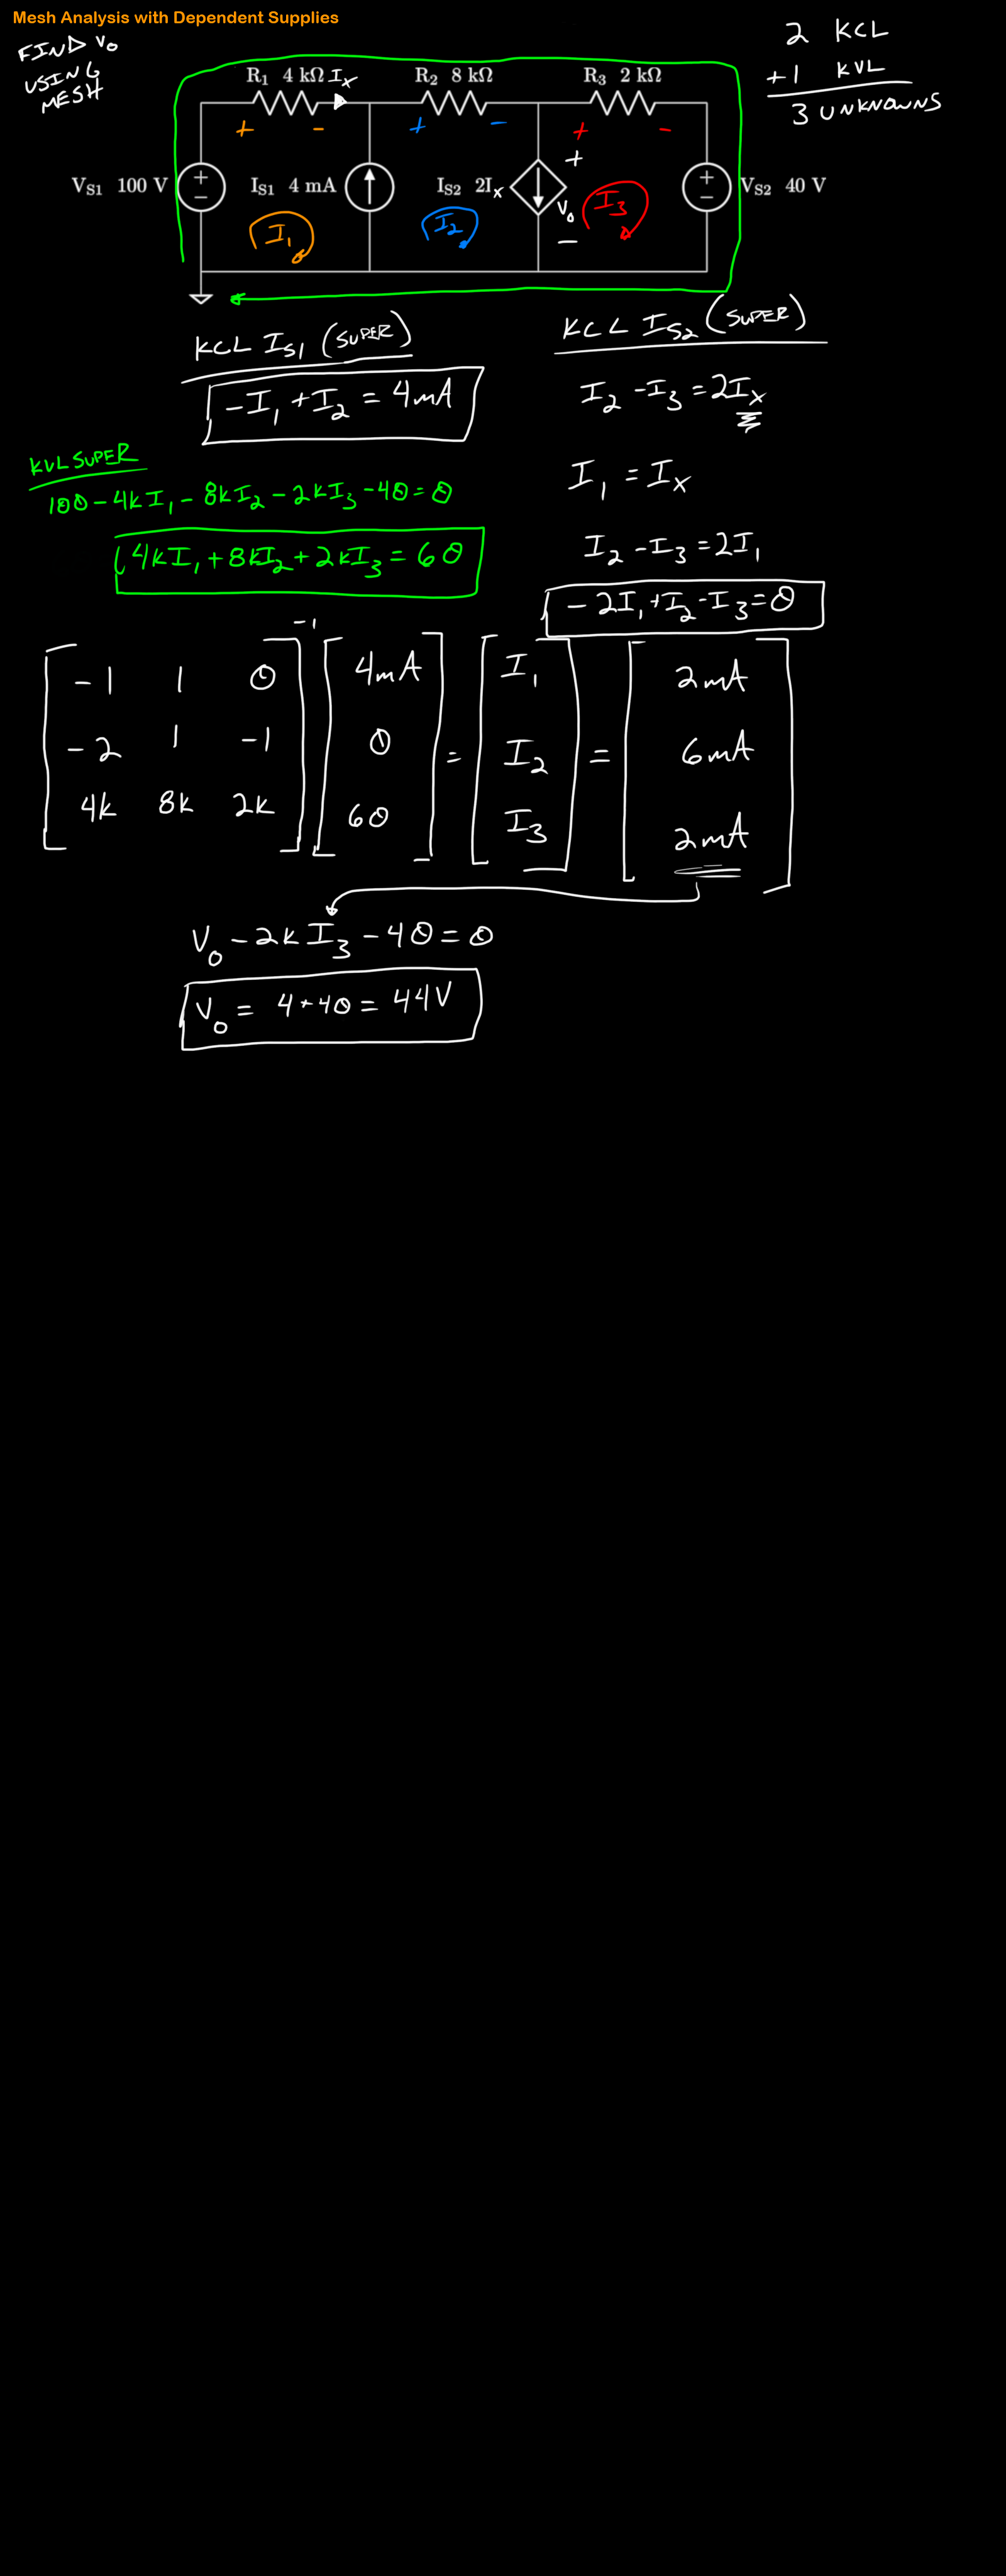 Mesh Analysis with Dependent Supplies
FIND V₀
USING
MESH
2 KCL
+1 KVL
3 UNKNOWNS
R₁ 4 kΩ Iₓ
R₂ 8 kΩ
R₃ 2 kΩ
+ −
+ −
+ −
V_S1 100 V
+
−
I_S1 4 mA
I_S2 2Iₓ
+
V₀
−
+
−
V_S2 40 V
I₁
I₂
I₃
KCL I_S1 (SUPER)
-I₁ + I₂ = 4mA
KCL I_S2 (SUPER)
I₂ - I₃ = 2Iₓ
I₁ = Iₓ
I₂ - I₃ = 2I₁
-2I₁ + I₂ - I₃ = 0
KVL SUPER
100 - 4kI₁ - 8kI₂ - 2kI₃ - 40 = 0
4kI₁ + 8kI₂ + 2kI₃ = 60
[-1 1 0]⁻¹ [4mA] = [I₁] = [2mA]
[-2 1 -1] [0] [I₂] [6mA]
[4k 8k 2k] [60] [I₃] [2mA]
V₀ - 2kI₃ - 40 = 0
V₀ = 4 + 40 = 44V